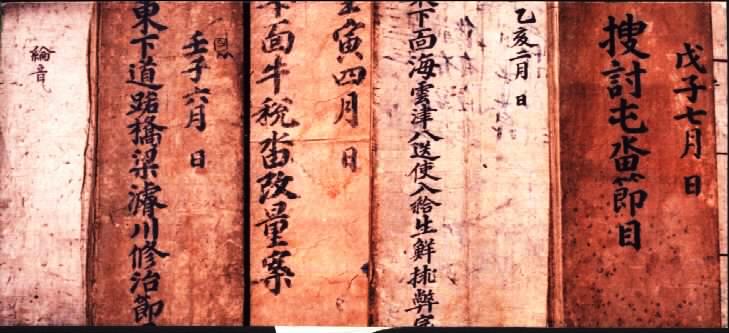 戊子七月 日
搜討屯畓節目
乙亥二月 日
下面海雲津八送使入給生鮮
寅四月 日
面牛稅畓改量案
壬子六月 日
東下道路橋梁濬川修治節
綸音